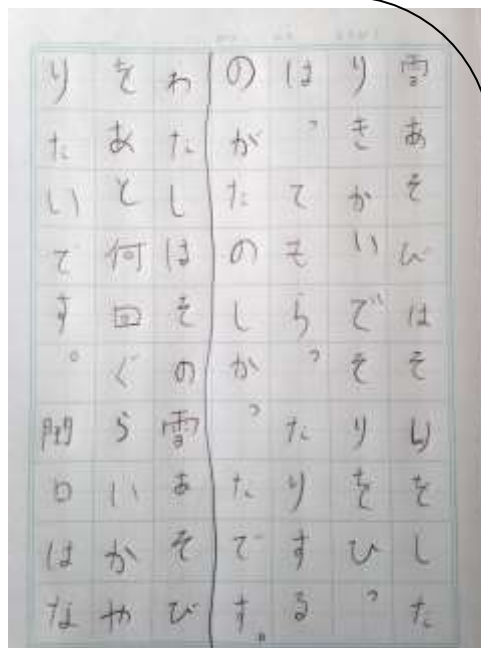 雪あそびはそりをした
りきかいでそりをひっ
はってもらったりする
のがたのしかったです。
わたしはその雪あそび
をあと何回ぐらいかや
りたいです。口はな